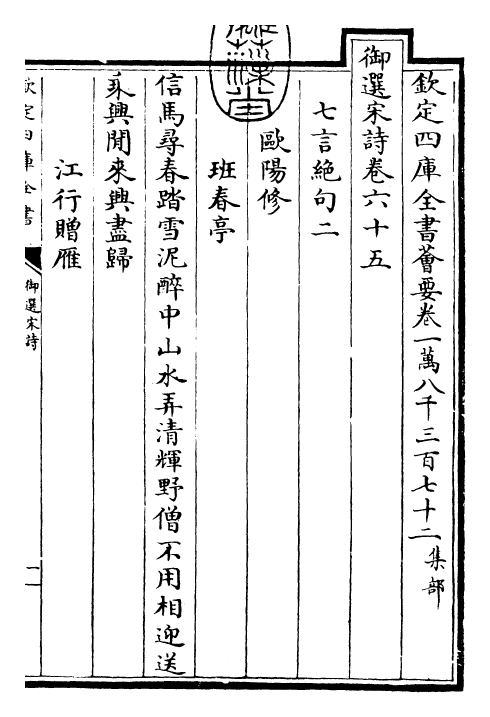 欽定四庫全書薈要卷一萬八千三百七十二集部
御選宋詩卷六十五
七言絶句二
歐陽修
班春亭
信馬尋春踏雪泥醉中山水弄清輝野僧不用相迎送
乘興閒來興盡歸
江行贈雁
欽定四庫全書
御選宋詩